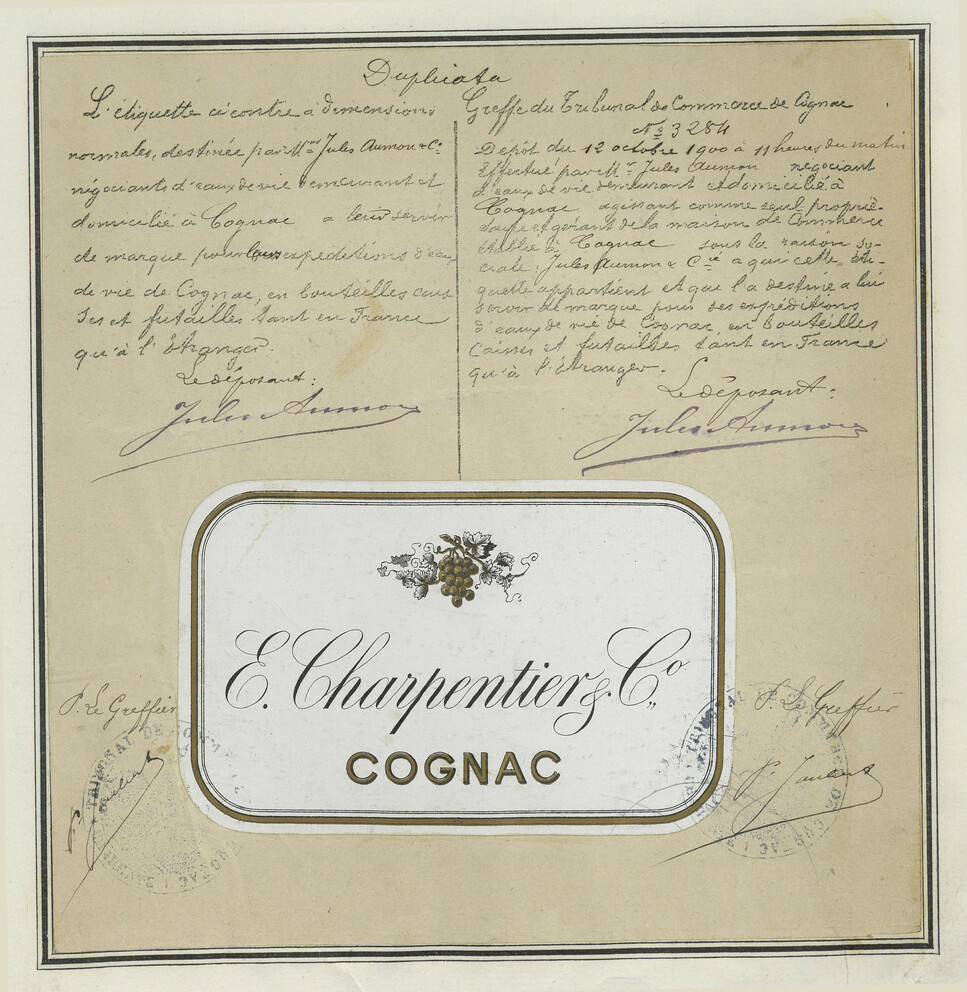 Duplicata
L'étiquette ci contre à dimensions
normales, destinée par Mrs Jules Aumon & Cie
négociants d'eaux de vie demeurant et
domicilié à Cognac a leur servir
de marque pour leurs expéditions d'eaux
de vie de Cognac, en bouteilles cais
ses et futailles tant en France
qu'à l'Étranger.
Le déposant:
Jules Aumon
Greffe du Tribunal de Commerce de Cognac
No 3284
Dépôt du 12 octobre 1900 à 11 heures du matin
Effectué par Mr Jules Aumon négociant
d'eaux de vie demeurant et domicilié à
Cognac agissant comme seul proprié-
taire et gérant de la maison de Commerce
établie à Cognac sous la raison so-
ciale: Jules Aumon & Cie a qui cette éti-
quette appartient et qui l'a destine a lui
servir de marque pour ses expéditions
d'eaux de vie de Cognac, en bouteilles
Caisses et futailles tant en France
qu'à l'étranger.
Le déposant:
Jules Aumon
E. Charpentier & Co
COGNAC
P. Le Greffier
P. Le Greffier
TRIBUNAL DE COMMERCE DE COGNAC
TRIBUNAL DE COMMERCE DE COGNAC